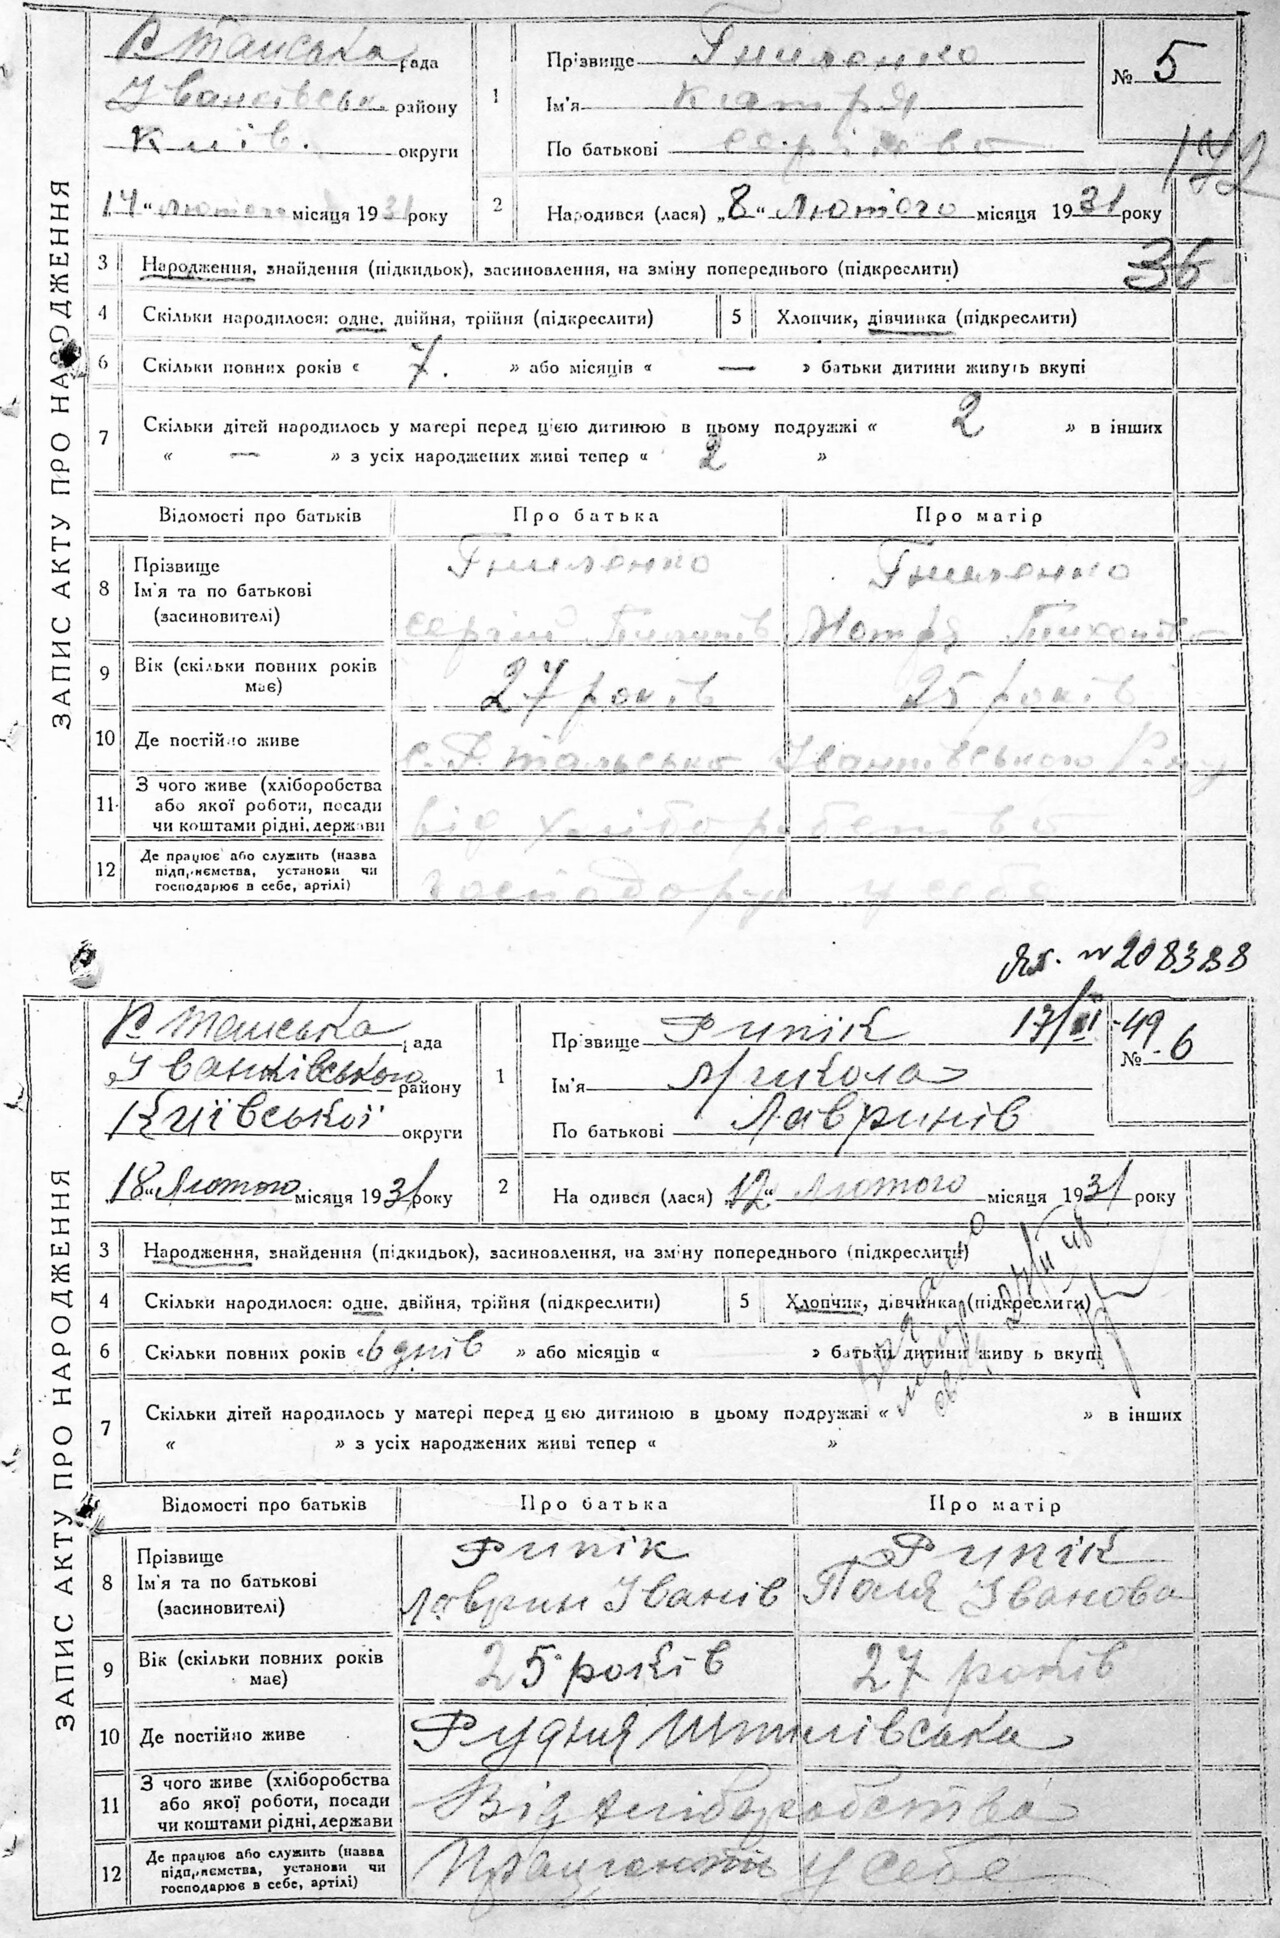 ЗАПИС АКТУ ПРО НАРОДЖЕННЯ
Р Тальська рада
Іванківськ. району
Київ. округи
14 "лютого місяця 1931 року
1 Прізвище Гниленко
Ім'я Катря
По батькові Сергієва
№ 5
172
2 Народився (лася) „8" Лютого місяця 1931 року
36
3 Народження, знайдення (підкидьок), засиновлення, на зміну попереднього (підкреслити)
4 Скільки народилося: одне, двійня, трійня (підкреслити) 5 Хлопчик, дівчинка (підкреслити)
6 Скільки повних років « 7. » або місяців « — » батьки дитини живуть вкупі
7 Скільки дітей народилось у матері перед цією дитиною в цьому подружжі « 2 » в інших
« — » з усіх народжених живі тепер « 2 »
Відомості про батьків Про батька Про матір
8 Прізвище Гниленко Гниленко
Ім'я та по батькові
(засиновителі) Сергій Мотря
9 Вік (скільки повних років має) 27 років 25 років
10 Де постійно живе с. Р. Тальська Іванківського Р-ну
11 З чого живе (хліборобства
або якої роботи, посади
чи коштами рідні, держави від хліборобства
12 Де працює або служить (назва
підприємства, установи чи
господарює в себе, артілі) господарує у себе
№ 208388
ЗАПИС АКТУ ПРО НАРОДЖЕННЯ
Р Тальська рада
Іванківського району
Київської округи
„18" Лютого місяця 1931 року
1 Прізвище Рипік
17/III-49
Ім'я Микола
По батькові Лавринів
№ 6
2 Народився (лася) „12" Лютого місяця 1931 року
3 Народження, знайдення (підкидьок), засиновлення, на зміну попереднього (підкреслити)
4 Скільки народилося: одне, двійня, трійня (підкреслити) 5 Хлопчик, дівчинка (підкреслити)
6 Скільки повних років «6 днів » або місяців « » батьки дитини живуть вкупі
7 Скільки дітей народилось у матері перед цією дитиною в цьому подружжі « » в інших
« » з усіх народжених живі тепер « »
Відомості про батьків Про батька Про матір
8 Прізвище Рипік Рипік
Ім'я та по батькові Лаврин Іванів Поля Іванова
(засиновителі)
9 Вік (скільки повних років має) 25 років 27 років
10 Де постійно живе Рудня Шпилівська
11 З чого живе (хліборобства
або якої роботи, посади
чи коштами рідні, держави Від хліборобства
12 Де працює або служить (назва
підприємства, установи чи
господарює в себе, артілі) Працюють у себе